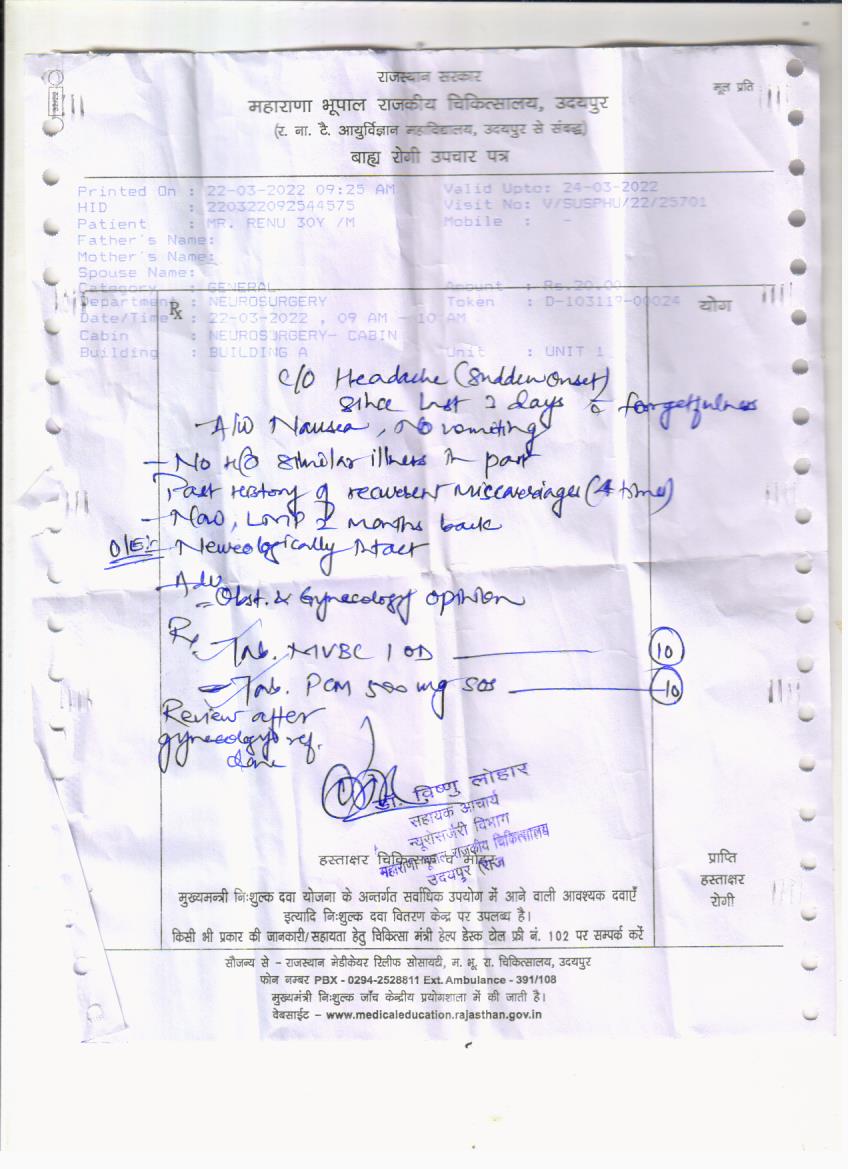 राजस्थान सरकार
मूल प्रति
महाराणा भूपाल राजकीय चिकित्सालय, उदयपुर
(र. ना. टै. आयुर्विज्ञान महाविद्यालय, उदयपुर से संबद्ध)
बाह्य रोगी उपचार पत्र
Printed On : 22-03-2022 09:25 AM Valid Upto: 24-03-2022
HID : 220322092544575 Visit No: V/SUSPHU/22/25701
Patient : MR. RENU 30Y /M Mobile : -
Father's Name:
Mother's Name:
Spouse Name:
Category : GENERAL Amount : Rs.20.00
Department : NEUROSURGERY Token : D-103117-00024
Rx योग
Date/Time : 22-03-2022 , 09 AM - 10 AM
Cabin : NEUROSURGERY- CABIN
Building : BUILDING A Unit : UNIT 1
C/O Headache (Sudden onset)
Since last 2 days c̄ forgetfulness
A/W Nausea, No vomiting
- No H/O similar illness in past
Past history of recurrent miscarriages (4 times)
- Now, LMP 2 months back
O/E:- Neurologically Intact
- Adv
= Obst. & Gynecology opinion
Rx
Tab. MVBC 1 OD 10
- Tab. PCM 500 mg SOS 10
Review after
gynecology ref.
done
डॉ. विष्णु लोहार
सहायक आचार्य
न्यूरोसर्जरी विभाग
महाराणा भूपाल राजकीय चिकित्सालय
उदयपुर (राज
हस्ताक्षर चिकित्सक व मोहर
प्राप्ति
हस्ताक्षर
रोगी
मुख्यमन्त्री निःशुल्क दवा योजना के अन्तर्गत सर्वाधिक उपयोग में आने वाली आवश्यक दवाएँ
इत्यादि निःशुल्क दवा वितरण केन्द्र पर उपलब्ध है।
किसी भी प्रकार की जानकारी/सहायता हेतु चिकित्सा मंत्री हेल्प डेस्क टोल फ्री नं. 102 पर सम्पर्क करें
सौजन्य से - राजस्थान मेडीकेयर रिलीफ सोसायटी, म. भू. रा. चिकित्सालय, उदयपुर
फोन नम्बर PBX - 0294-2528811 Ext. Ambulance - 391/108
मुख्यमंत्री निःशुल्क जाँच केन्द्रीय प्रयोगशाला में की जाती है।
वेबसाईट - www.medicaleducation.rajasthan.gov.in